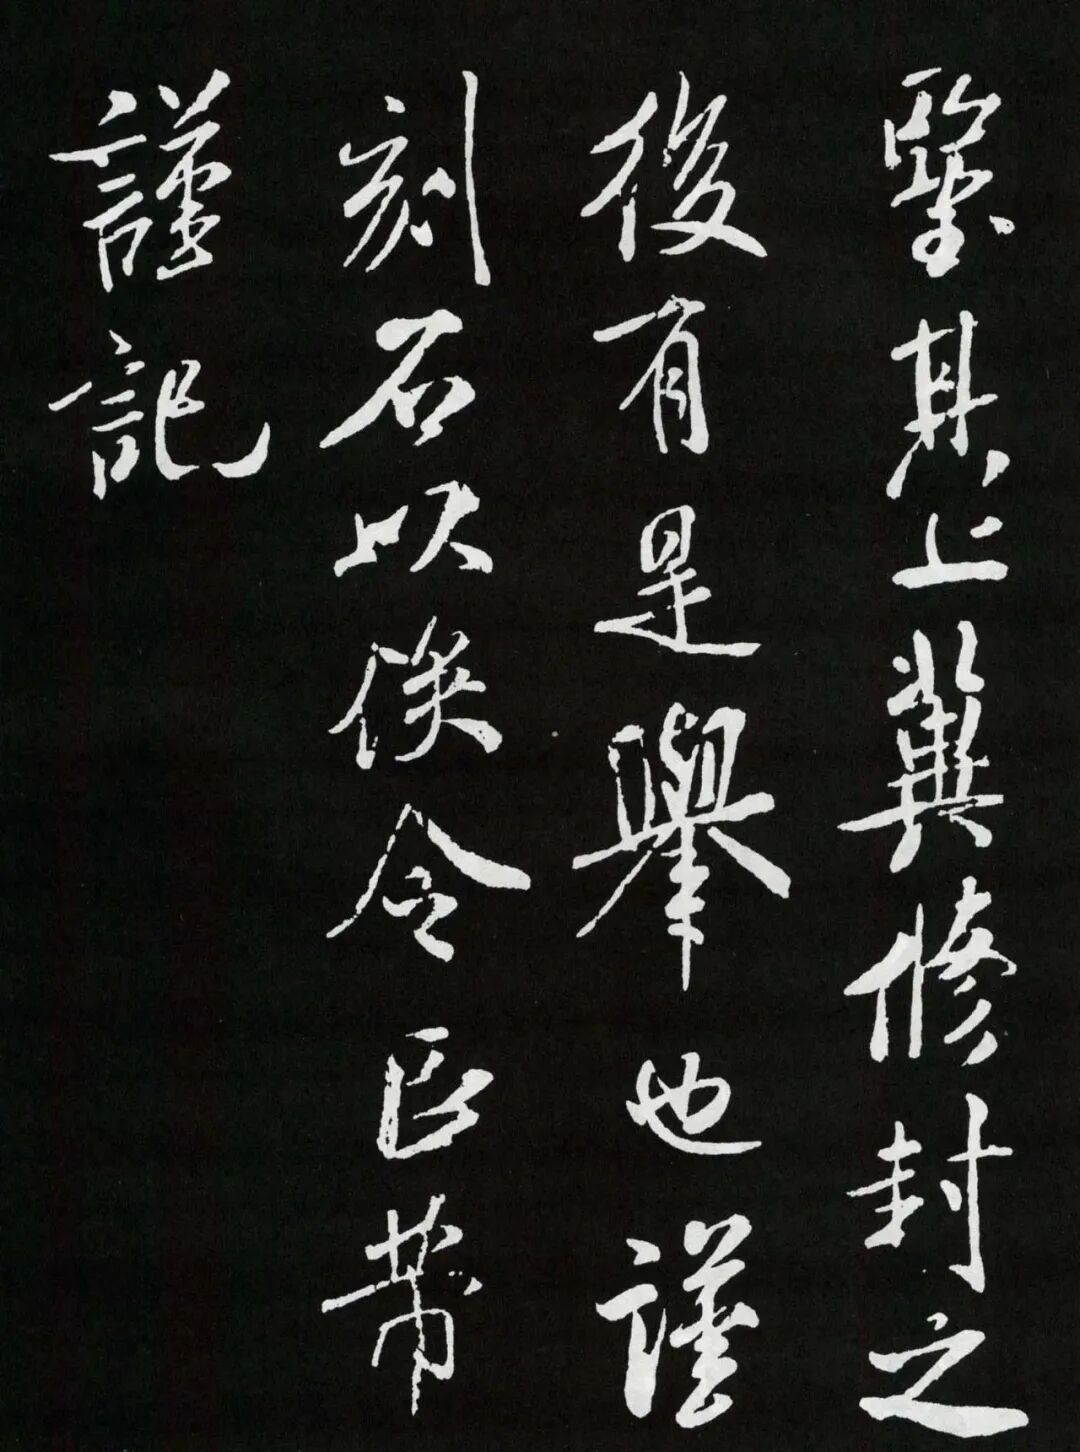 其上冀修封之
後有是舉也謹
刻石以俟令臣芾
謹記